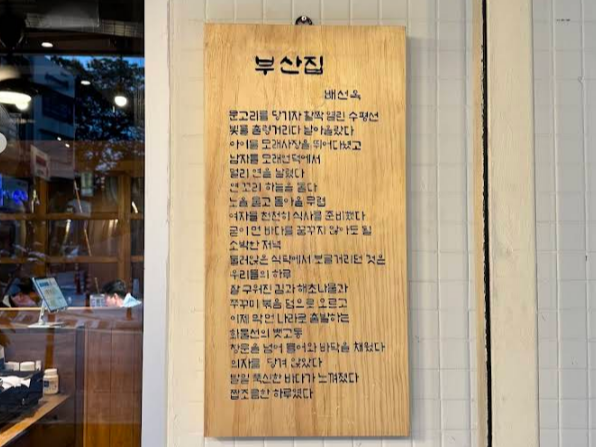 부산집
배선옥
문고리를 당기자 활짝 열린 수평선
빛을 출렁거리다 날아올랐다
아이들 모래사장을 뛰어다녔고
남자들 모래언덕에서
멀리 연을 날렸다
연 꼬리 하늘을 돌다
노을 물고 돌아올 무렵
여자들 천천히 식사를 준비했다
굳이 먼 바다를 꿈꾸지 않아도 될
소박한 저녁
둘러앉은 식탁에서 보글거리던 것은
우리들의 하루
잘 구워진 김과 해초나물과
쭈꾸미 볶음 덤으로 오르고
이제 막 먼 나라로 출발하는
화물선의 뱃고동
창문을 넘어 들어와 바닥을 채웠다
의자를 당겨 앉았다
말랑 푹신한 바다가 느껴졌다
짭조름한 하루였다